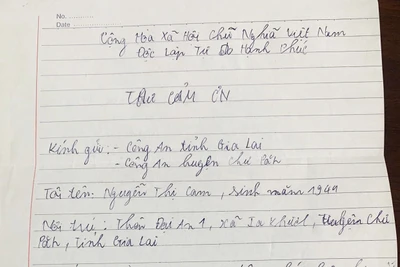 No.
Date
Cộng Hòa Xã Hội Chữ Nghĩa Việt Nam
Độc Lập Tự Do Hạnh Phúc
THƯ CẢM ƠN
Kính gửi: - Công An tỉnh Gia Lai
- Công An huyện Chư Păh
Tôi tên: Nguyễn Thị Cam, sinh năm 1949
Nơi trú: Thôn Đại An 1, xã Ia Khươl, Huyện Chư
Păh, tỉnh Gia Lai